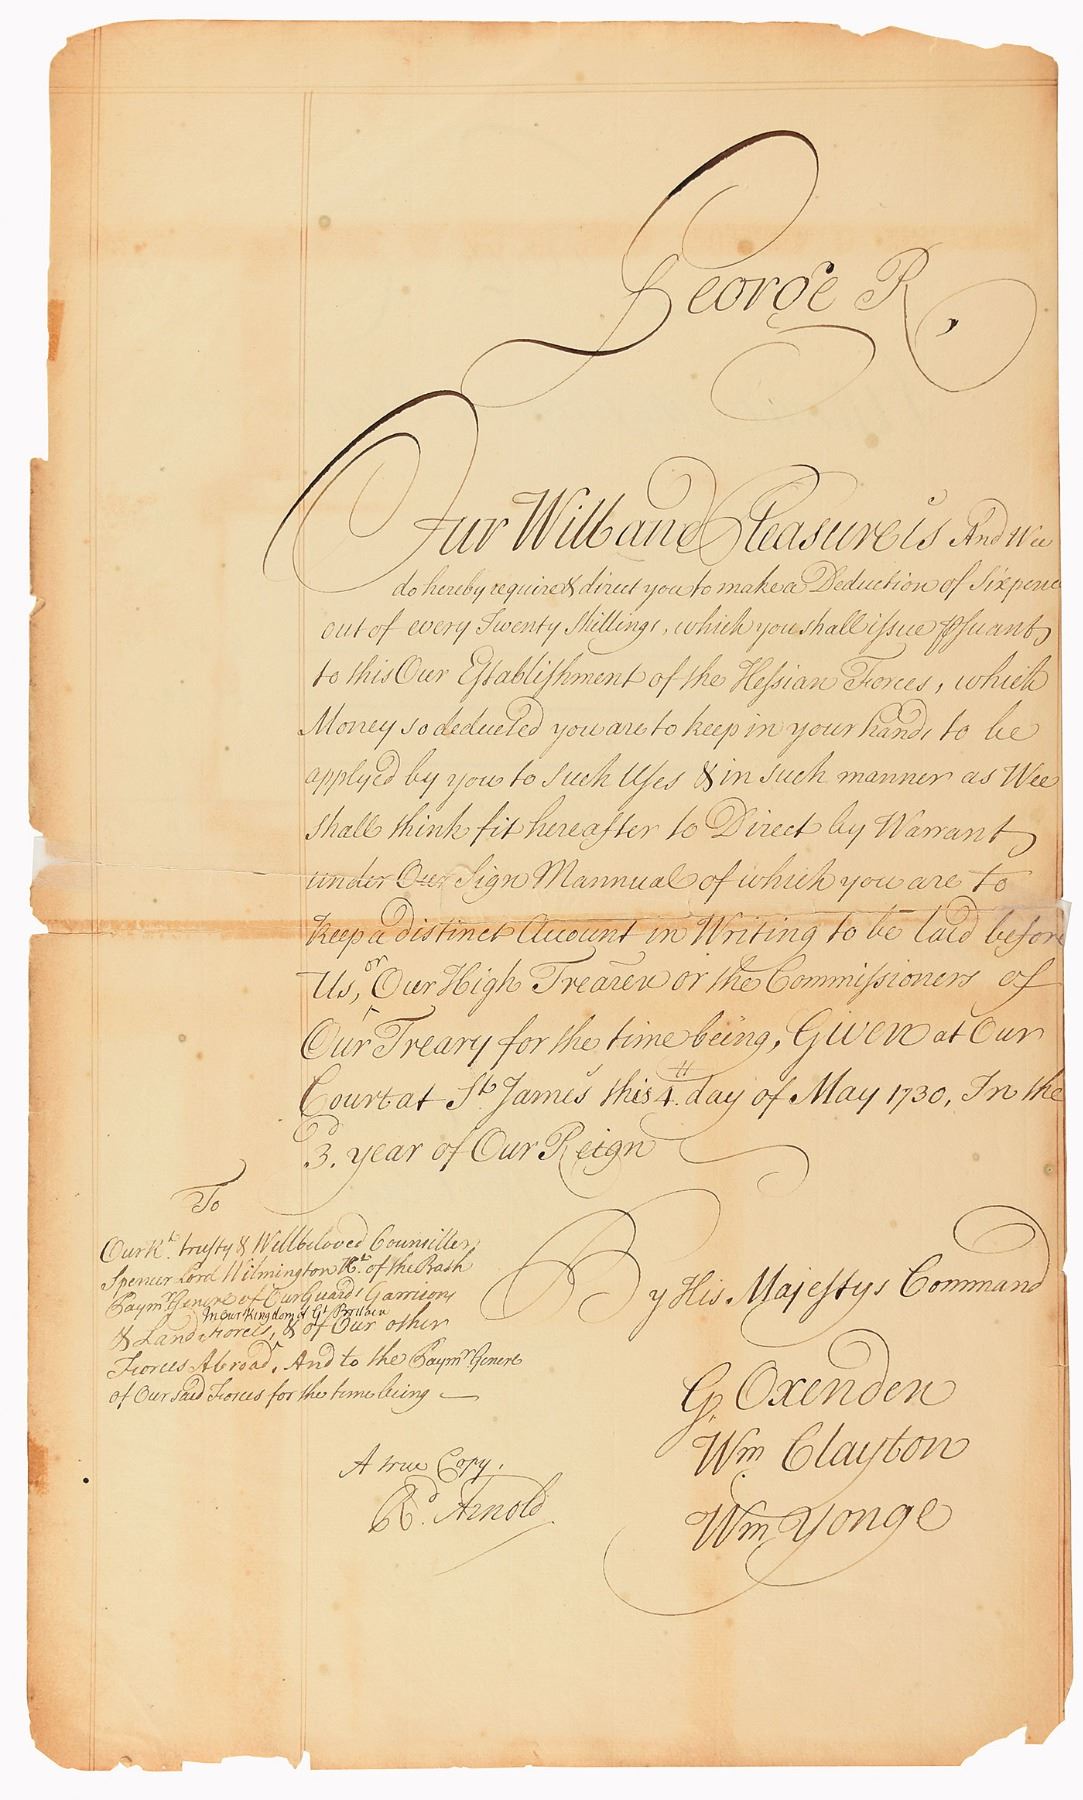 George R.
Our Will and Pleasure is And Wee
do hereby require & direct you to make a Deduction of Sixpence
out of every Twenty Shillings, which you shall issue psuant
to this Our Establishment of the Hessian Forces, which
Money so deducted you are to keep in your hands to be
applyed by you to such Uses & in such manner as Wee
shall think fit hereafter to Direct by Warrant
under Our Sign Mannual of which you are to
keep a distinct Account in Writing to be laid before
Us, or Our High Treãrer or the Commissioners of
Our Treãry for the time being, Given at Our
Court at St. James's this 4th. day of May 1730, In the
3d. year of Our Reign
To
Our Rt. trusty & Wellbeloved Counsiller
Spencer Lord Wilmington Kt. of the Bath
Paymr. Genere of Our Guards Garrisons
In Our Kingdom of Gt. Brittain
& Land Forces, & of Our other
Forces Abroad, And to the Paymr. Genere
of Our said Forces for the time being
By His Majestys Command
G. Oxenden
Wm Clayton
Wm Yonge
A true Copy.
Rd. Arnold